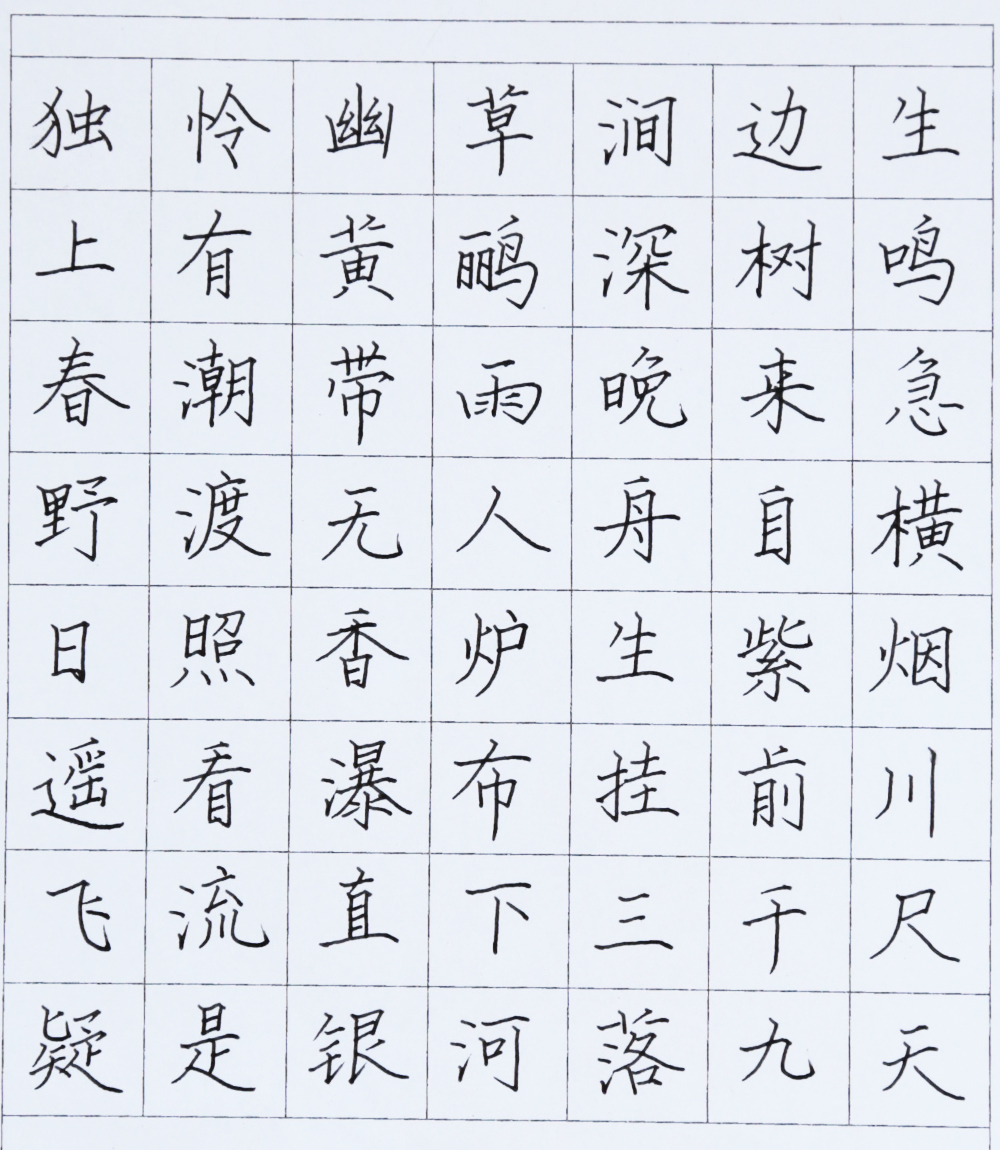 独怜幽草涧边生
上有黄鹂深树鸣
春潮带雨晚来急
野渡无人舟自横
日照香炉生紫烟
遥看瀑布挂前川
飞流直下三千尺
疑是银河落九天